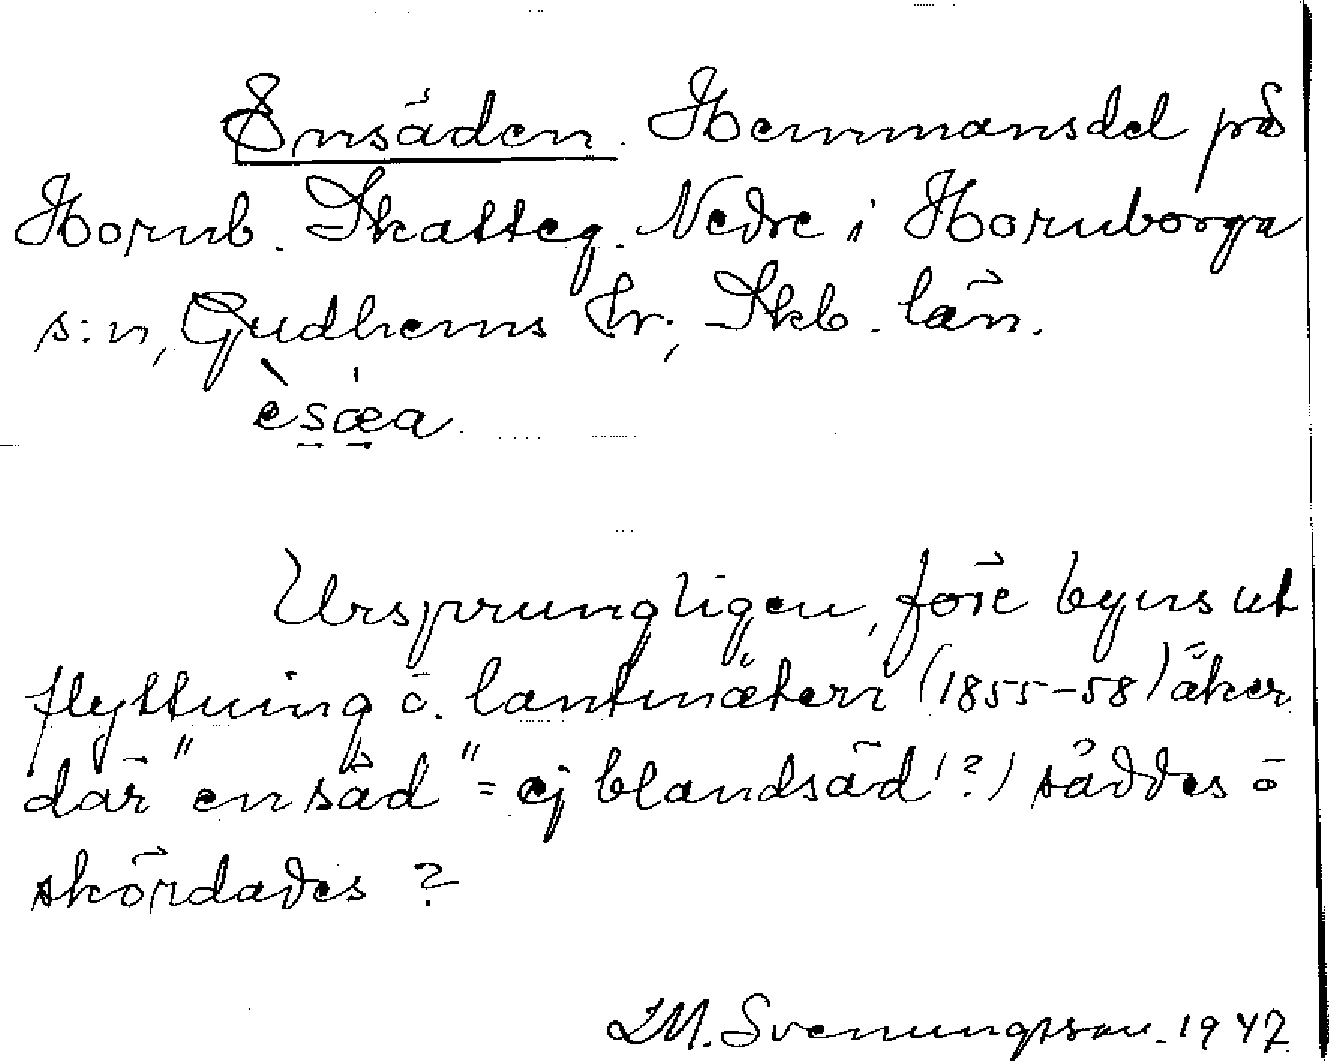 Ensäden. Hemmansdel på
Hornb. Skatteg. Nedre i Hornborga
s:n, Gudhems hr, Skb. län.
èsæa.
Ursprungligen, före byns ut
flyttning o. lantmäteri (1855-58) åker
där "en säd" = ej blandsäd (?) såddes o
skördades ?
L.M. Svenungsson. 1947